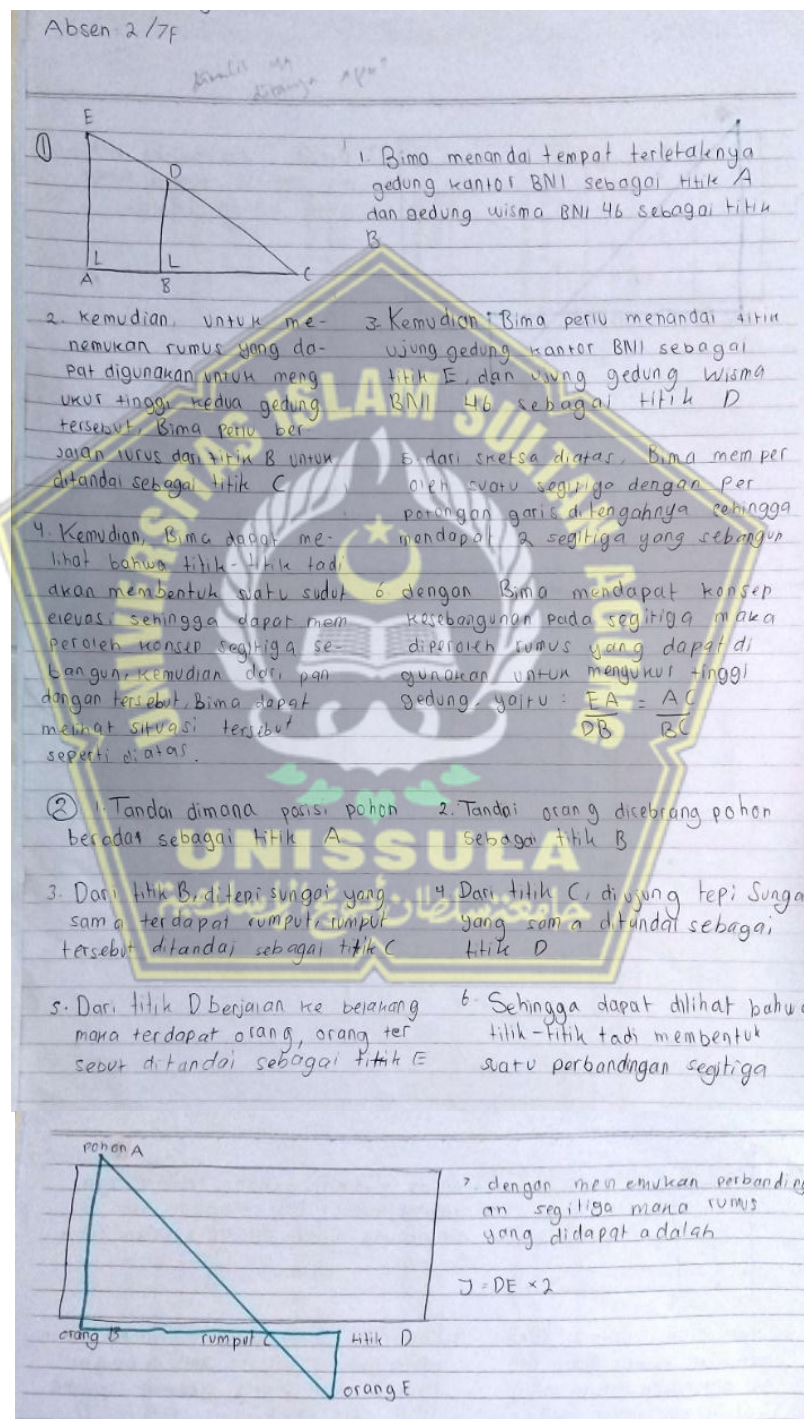 Absen 2/7F
ditanya apa?
E
①
D
A
B
C
1. Bima menandai tempat terletaknya
gedung kantor BNI sebagai titik A
dan gedung wisma BNI 46 sebagai titik
B
2. Kemudian, untuk me-
nemukan rumus yang da-
pat digunakan untuk meng
ukur tinggi kedua gedung
tersebut, Bima perlu ber-
jalan lurus dari titik B untuk
ditandai sebagai titik C
3. Kemudian Bima perlu menandai titik
ujung gedung kantor BNI sebagai
titik E, dan ujung gedung Wisma
BNI 46 sebagai titik D
4. Kemudian, Bima dapat me-
lihat bahwa titik-titik tadi
akan membentuk suatu sudut
elevasi sehingga dapat mem
peroleh konsep segitiga se-
bangun, kemudian dari pan
dangan tersebut, Bima dapat
melihat situasi tersebut
seperti diatas.
5. dari sketsa diatas, Bima memper
oleh suatu segitiga dengan Per
potongan garis ditengahnya sehingga
mendapat 2 segitiga yang sebangun
6. dengan Bima mendapat konsep
kesebangunan pada segitiga maka
diperoleh rumus yang dapat di
gunakan untuk mengukur tinggi
gedung, yaitu : EA/DB = AC/BC
② 1. Tandai dimana posisi pohon
beradar sebagai titik A
2. Tandai orang disebrang pohon
sebagai titik B
3. Dari titik B, ditepi sungai yang
sama terdapat rumput, rumput
tersebut ditandai sebagai titik C
4. Dari titik C, diujung tepi Sunga
yang sama ditandai sebagai
titik D
5. Dari titik D berjalan ke belakang
maka terdapat orang, orang ter
sebut ditandai sebagai titik E
6. Sehingga dapat dilihat bahwa
titik-titik tadi membentuk
suatu perbandingan segitiga
pohon A
orang B
rumput C
titik D
orang E
7. dengan menemukan perbanding
an segitiga maka rumus
yang didapat adalah
J = DE × 2
UNIVERSITAS ISLAM SULTAN AGUNG
UNISSULA
جامعة سلطان أجونج الإسلامية